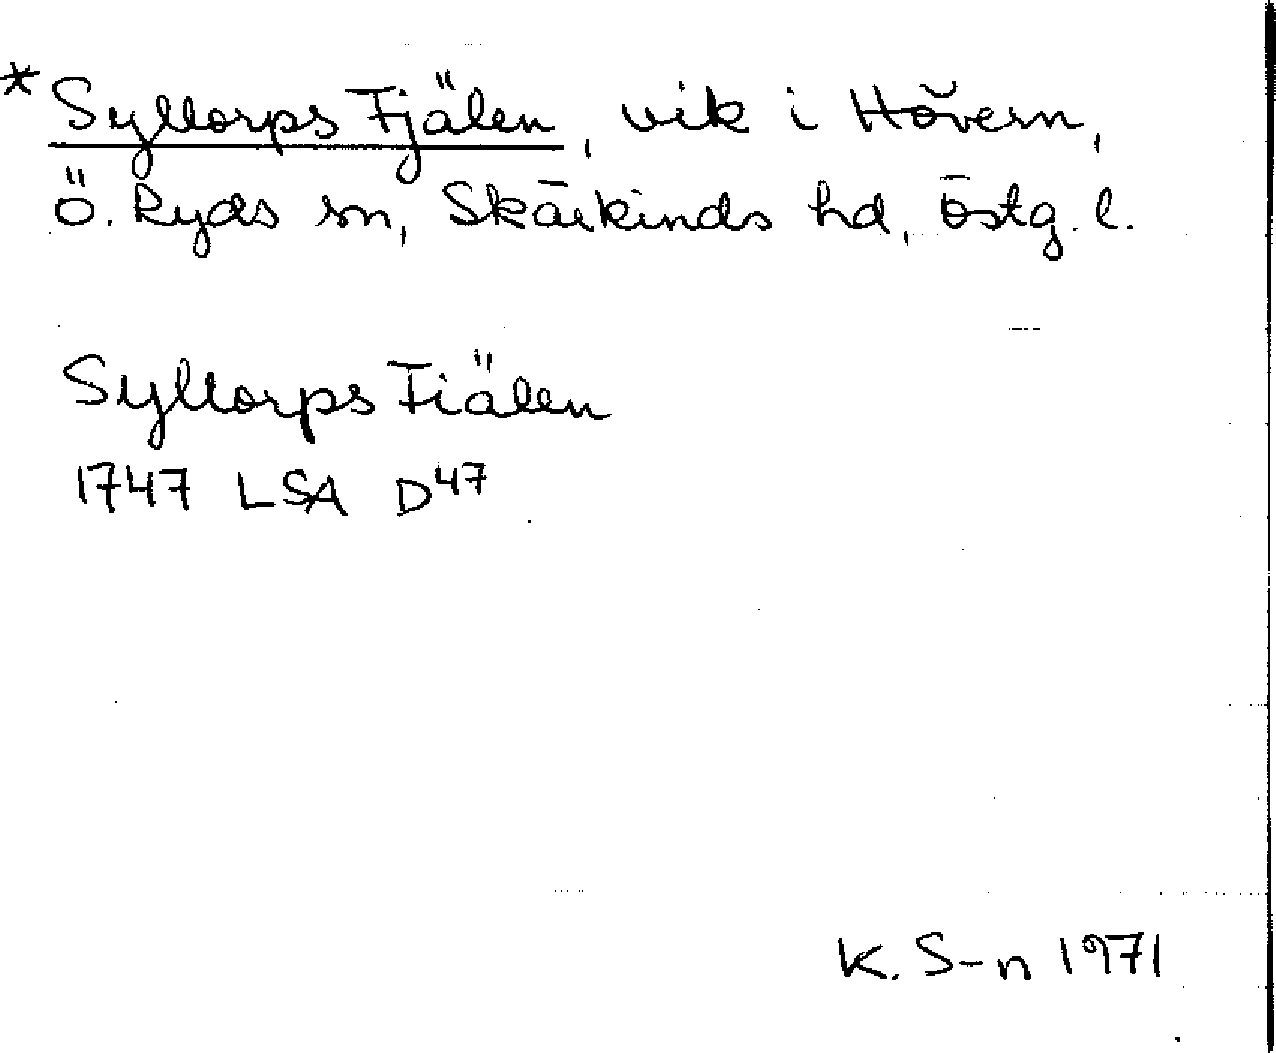 * Syltorps Fjälen, vik i Hövern,
Ö. Ryds sn, Skärkinds hd, Östg. l.
Syltorps Fiälen
1747 LSA D47
K. S-n 1971